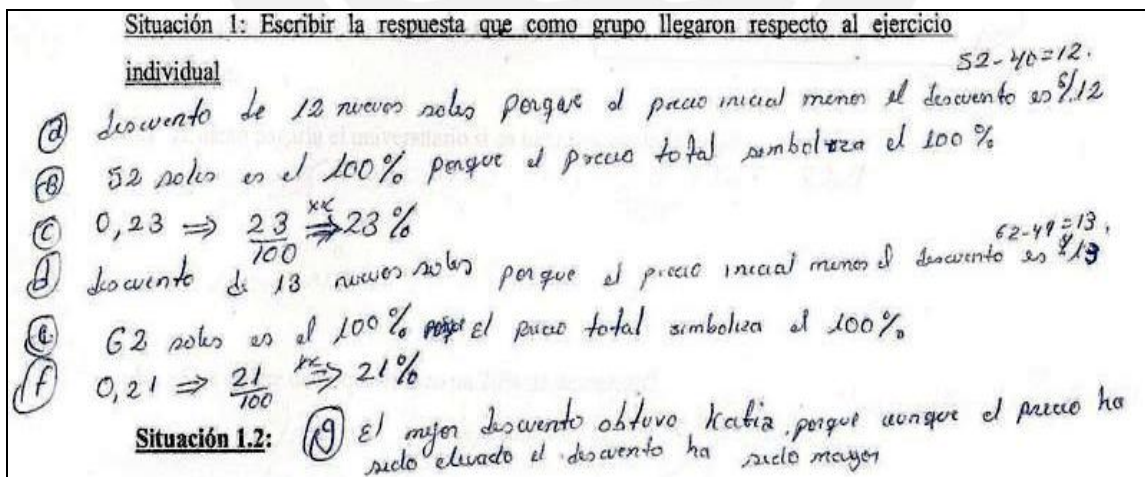 Situación 1: Escribir la respuesta que como grupo llegaron respecto al ejercicio
individual
52-40=12.
a descuento de 12 nuevos soles porque el precio inicial menos el descuento es S/.12
B 52 soles es el 100% porque el precio total simboliza el 100%
C 0,23 ⇒ 23/100 ⇒ 23%
62-49=13.
d descuento de 13 nuevos soles porque el precio inicial menos el descuento es S/13
e 62 soles es el 100% El precio total simboliza el 100%
f 0,21 ⇒ 21/100 ⇒ 21%
Situación 1.2: g El mejor descuento obtuvo Katia porque aunque el precio ha
sido elevado el descuento ha sido mayor